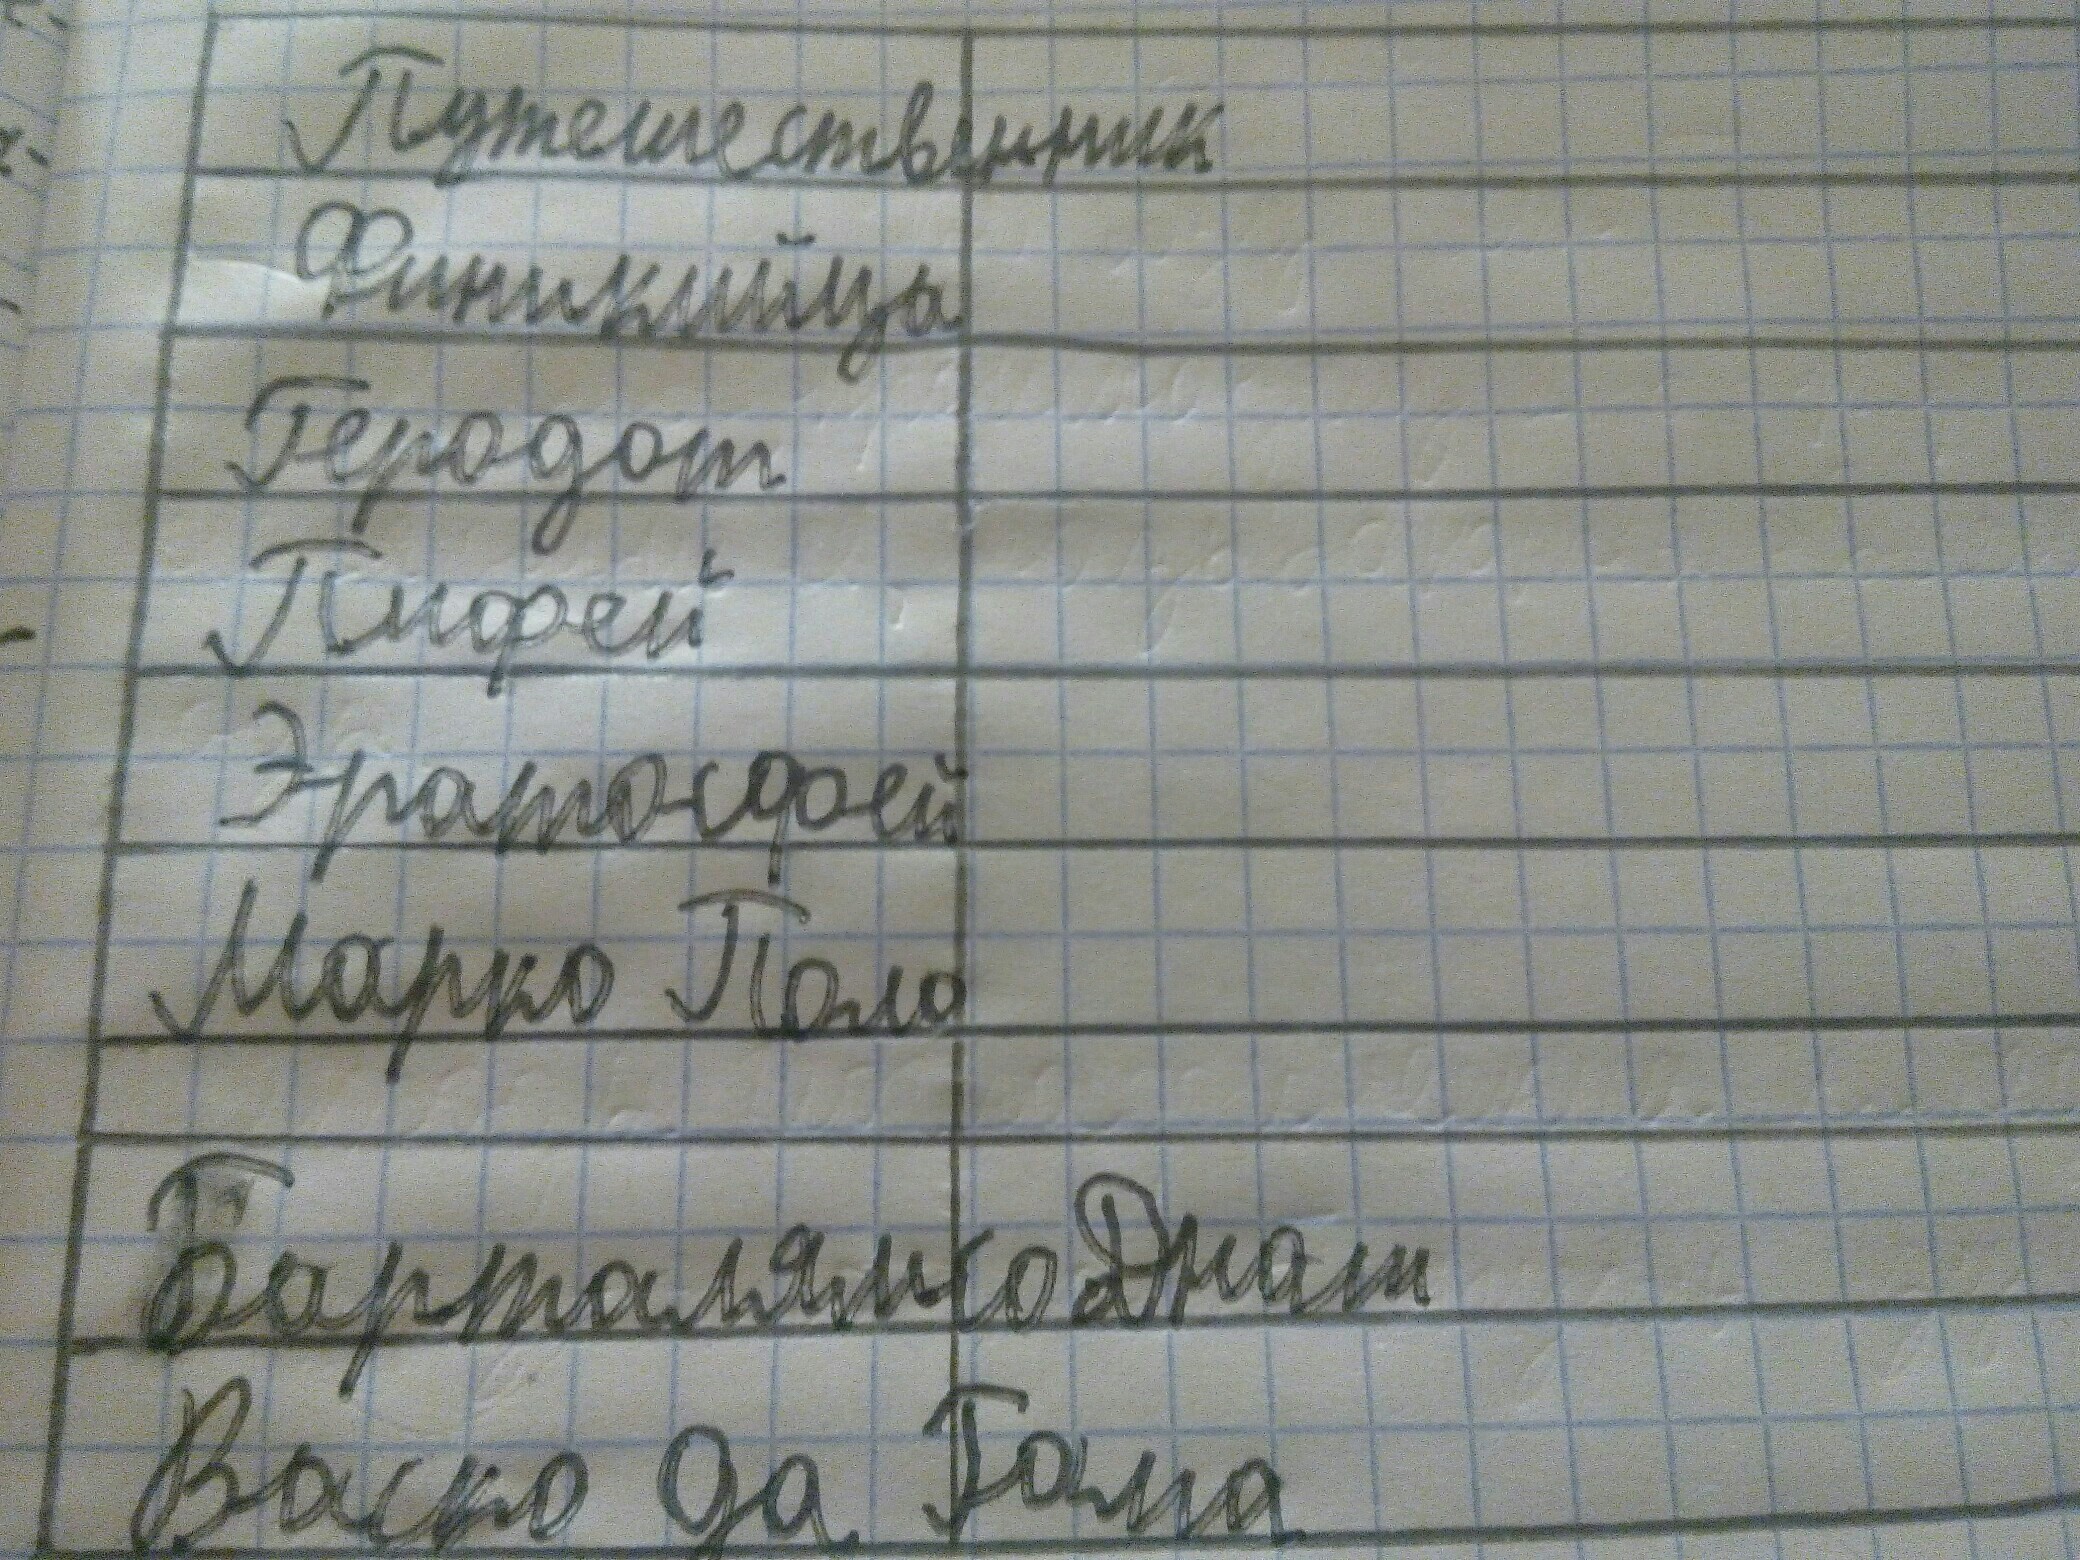 Путешественник
Финикийца
Геродот
Пифей
Эратосфей
Марко Поло
Барталямсо Диаш
Васко да Гама